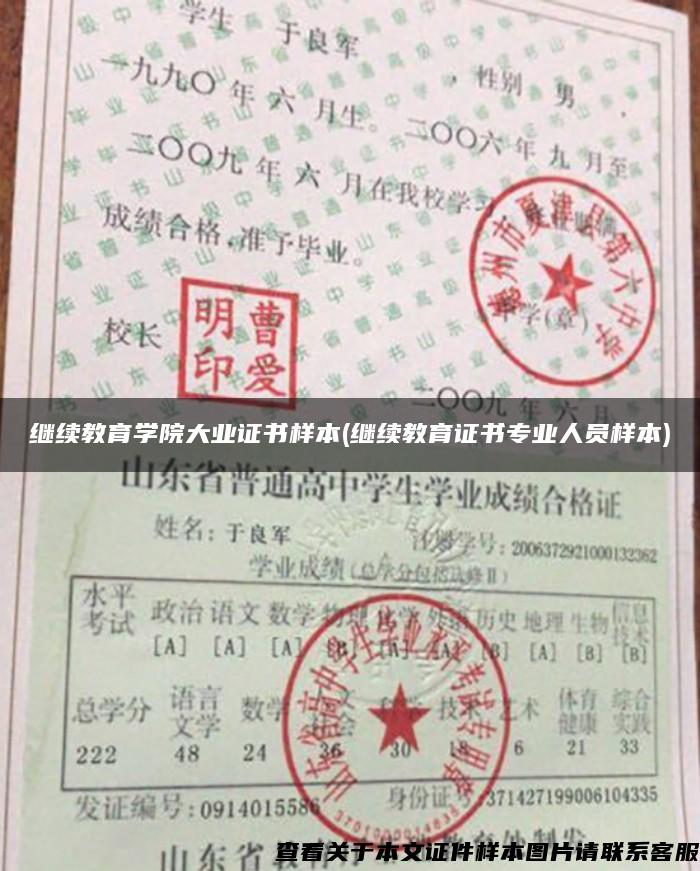 学生 于良军 , 性别 男
一九九〇年 六 月生。二〇〇六年 九 月至
二〇〇九年 六 月在我校学习,
成绩合格,准予毕业。
德州市夏津县第六中学
校长
曹爱明印
学(章)
二〇〇九年 六 月
继续教育学院大业证书样本(继续教育证书专业人员样本)
山东省普通高中学生学业成绩合格证
姓名:于良军 注册学号:2006372921000132362
学业成绩(总学分包括选修Ⅱ)
水平考试 政治 语文 数学 物理 化学 外语 历史 地理 生物 信息技术
[A] [A] [A] [B] [A] [B] [A] [B] [B]
总学分 语言文学 数学 科学 技术 艺术 体育健康 综合实践
222 48 24 36 30 18 6 21 33
山东省高中学生学业水平考试专用章
发证编号:0914015586 身份证号:371427199006104335
山东省
查看关于本文证件样本图片请联系客服